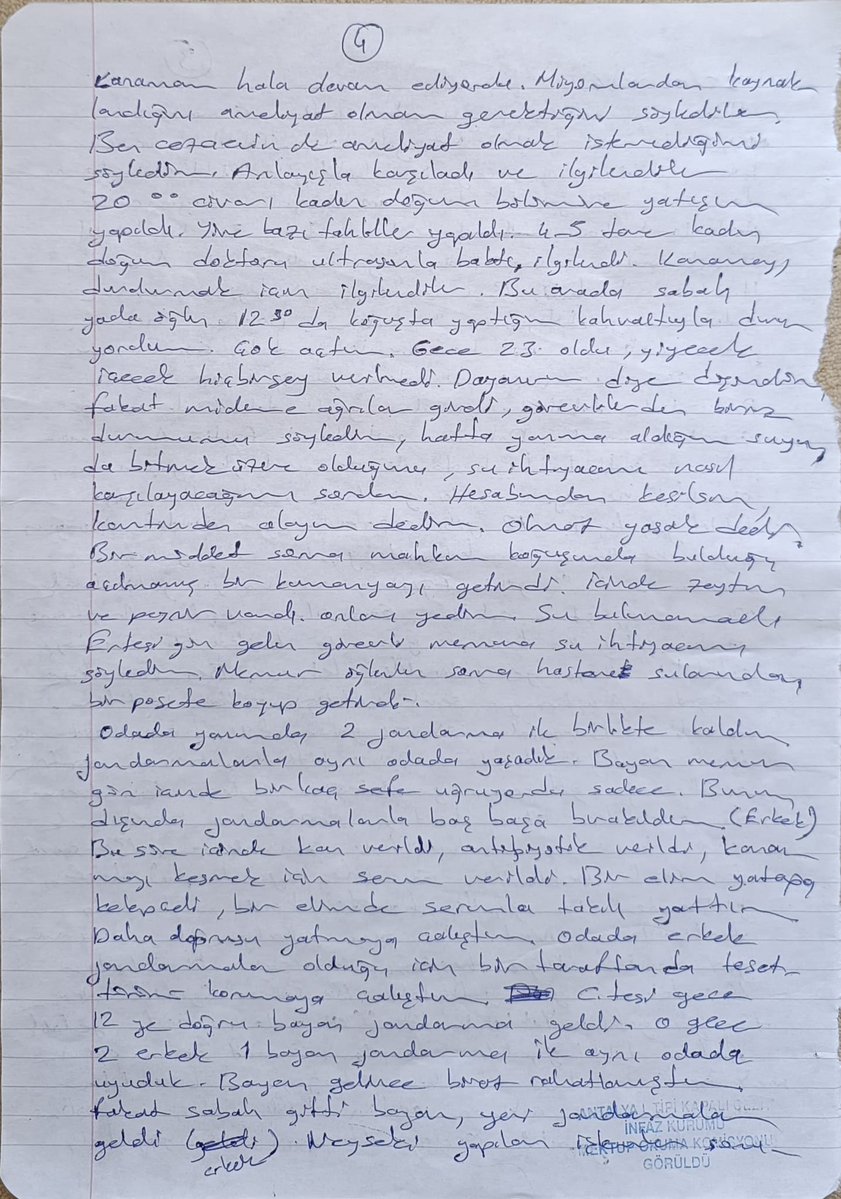 4
Kanamam hala devam ediyordu. Miyomlardan kaynak
landığını ameliyat olmam gerektiğini söylediler.
Ben cezaevinde ameliyat olmak istemediğimi
söyledim. Anlayışla karşıladı ve ilgilendiler
20 00 civarı kadın doğum bölümüne yatışım
yapıldı. Yine bazı tahliller yapıldı. 4-5 tane kadın
doğum doktoru ultrasonla baktı, ilgilendi. Kanamayı
durdurmak için ilgilendiler. Bu arada sabah
yada öğlen 12 30 da koğuşta yaptığım kahvaltıyla duru
yordum. Çok açtım. Gece 23 oldu, yiyecek
içecek hiçbirşey verilmedi. Dayanırım diye düşündüm,
fakat mideme ağrılar girdi, görevlilerden birine
durumumu söyledim, hatta yanıma aldığım suyun
da bitmek üzere olduğunu, su ihtiyacımı nasıl
karşılayacağımı sordum. Hesabımdan kesilsin,
kantinden alayım dedim. Olmaz yasak dedi.
Bir müddet sonra mahkum koğuşunda bulduğu
açılmamış bir kumanyayı getirdi. içinde zeytin
ve peynir vardı. onları yedim. Su bulunamadı
Ertesi gün gelen görevli memura su ihtiyacımı
söyledim. Memur öğleden sonra hastane sularından
bir poşete koyup getirdi.
Odada yanımda 2 jandarma ile birlikte kaldım
jandarmalarla aynı odada yaşadık. Bayan memur
gün içinde birkaç sefer uğruyordu sadece. Bunun
dışında jandarmalarla baş başa bırakıldım. (Erkek)
Bu süre içinde kan verildi, antibiyotik verildi, kana
mayı kesmek için serum verildi. Bir elim yatağa
kelepçeli, bir elimde serumla takılı yattım
Daha doğrusu yatmaya çalıştım. Odada erkek
jandarmalar olduğu için bir taraftanda teset-
türümü korumaya çalıştım. C.tesi gece
12 ye doğru bayan jandarma geldi. O gece
2 erkek 1 bayan jandarma ile aynı odada
uyuduk. Bayan gelince biraz rahatlamıştım.
fakat sabah gitti bayan, yeni jandarmalar
geldi (erkek) Neyseki yapılan
İNFAZ KURUMU
MEKTUP OKUMA KOMİSYONU
GÖRÜLDÜ